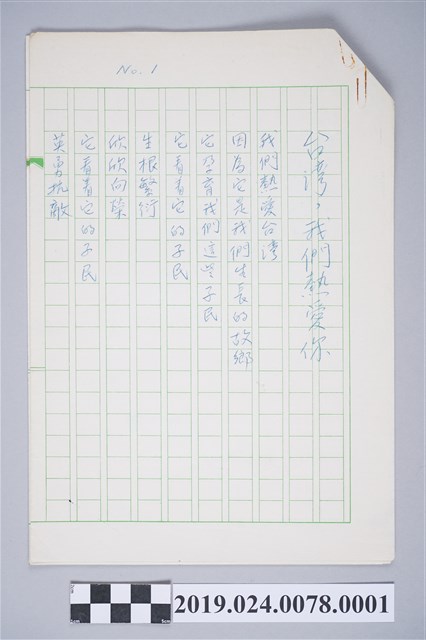 No. 1
台湾，我們熱愛你
我們熱愛台湾
因為它是我們生長的故鄉
它孕育我們這些子民
它看着它的子民
生根繁衍
欣欣向榮
它看着它的子民
英勇抗敵
2019.024.0078.0001
5cm